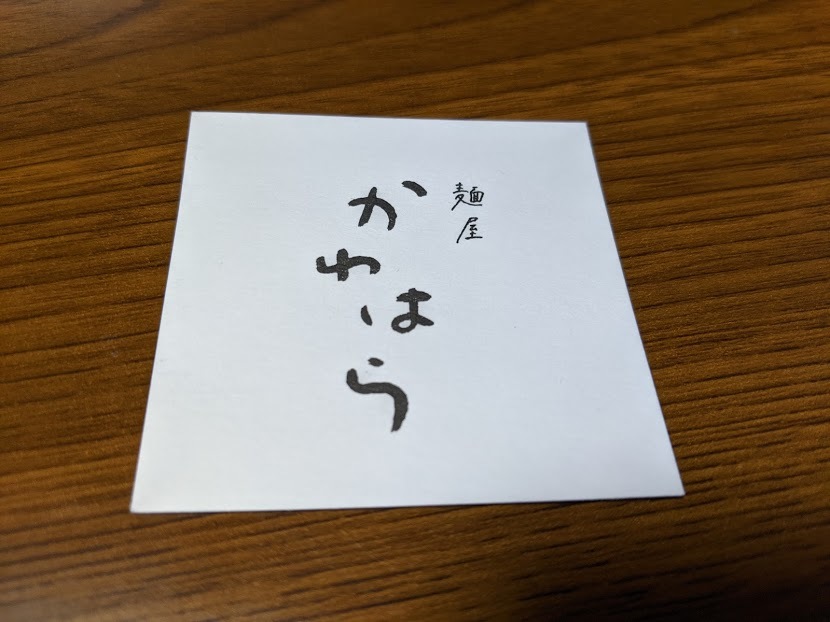 麺屋
かわはら